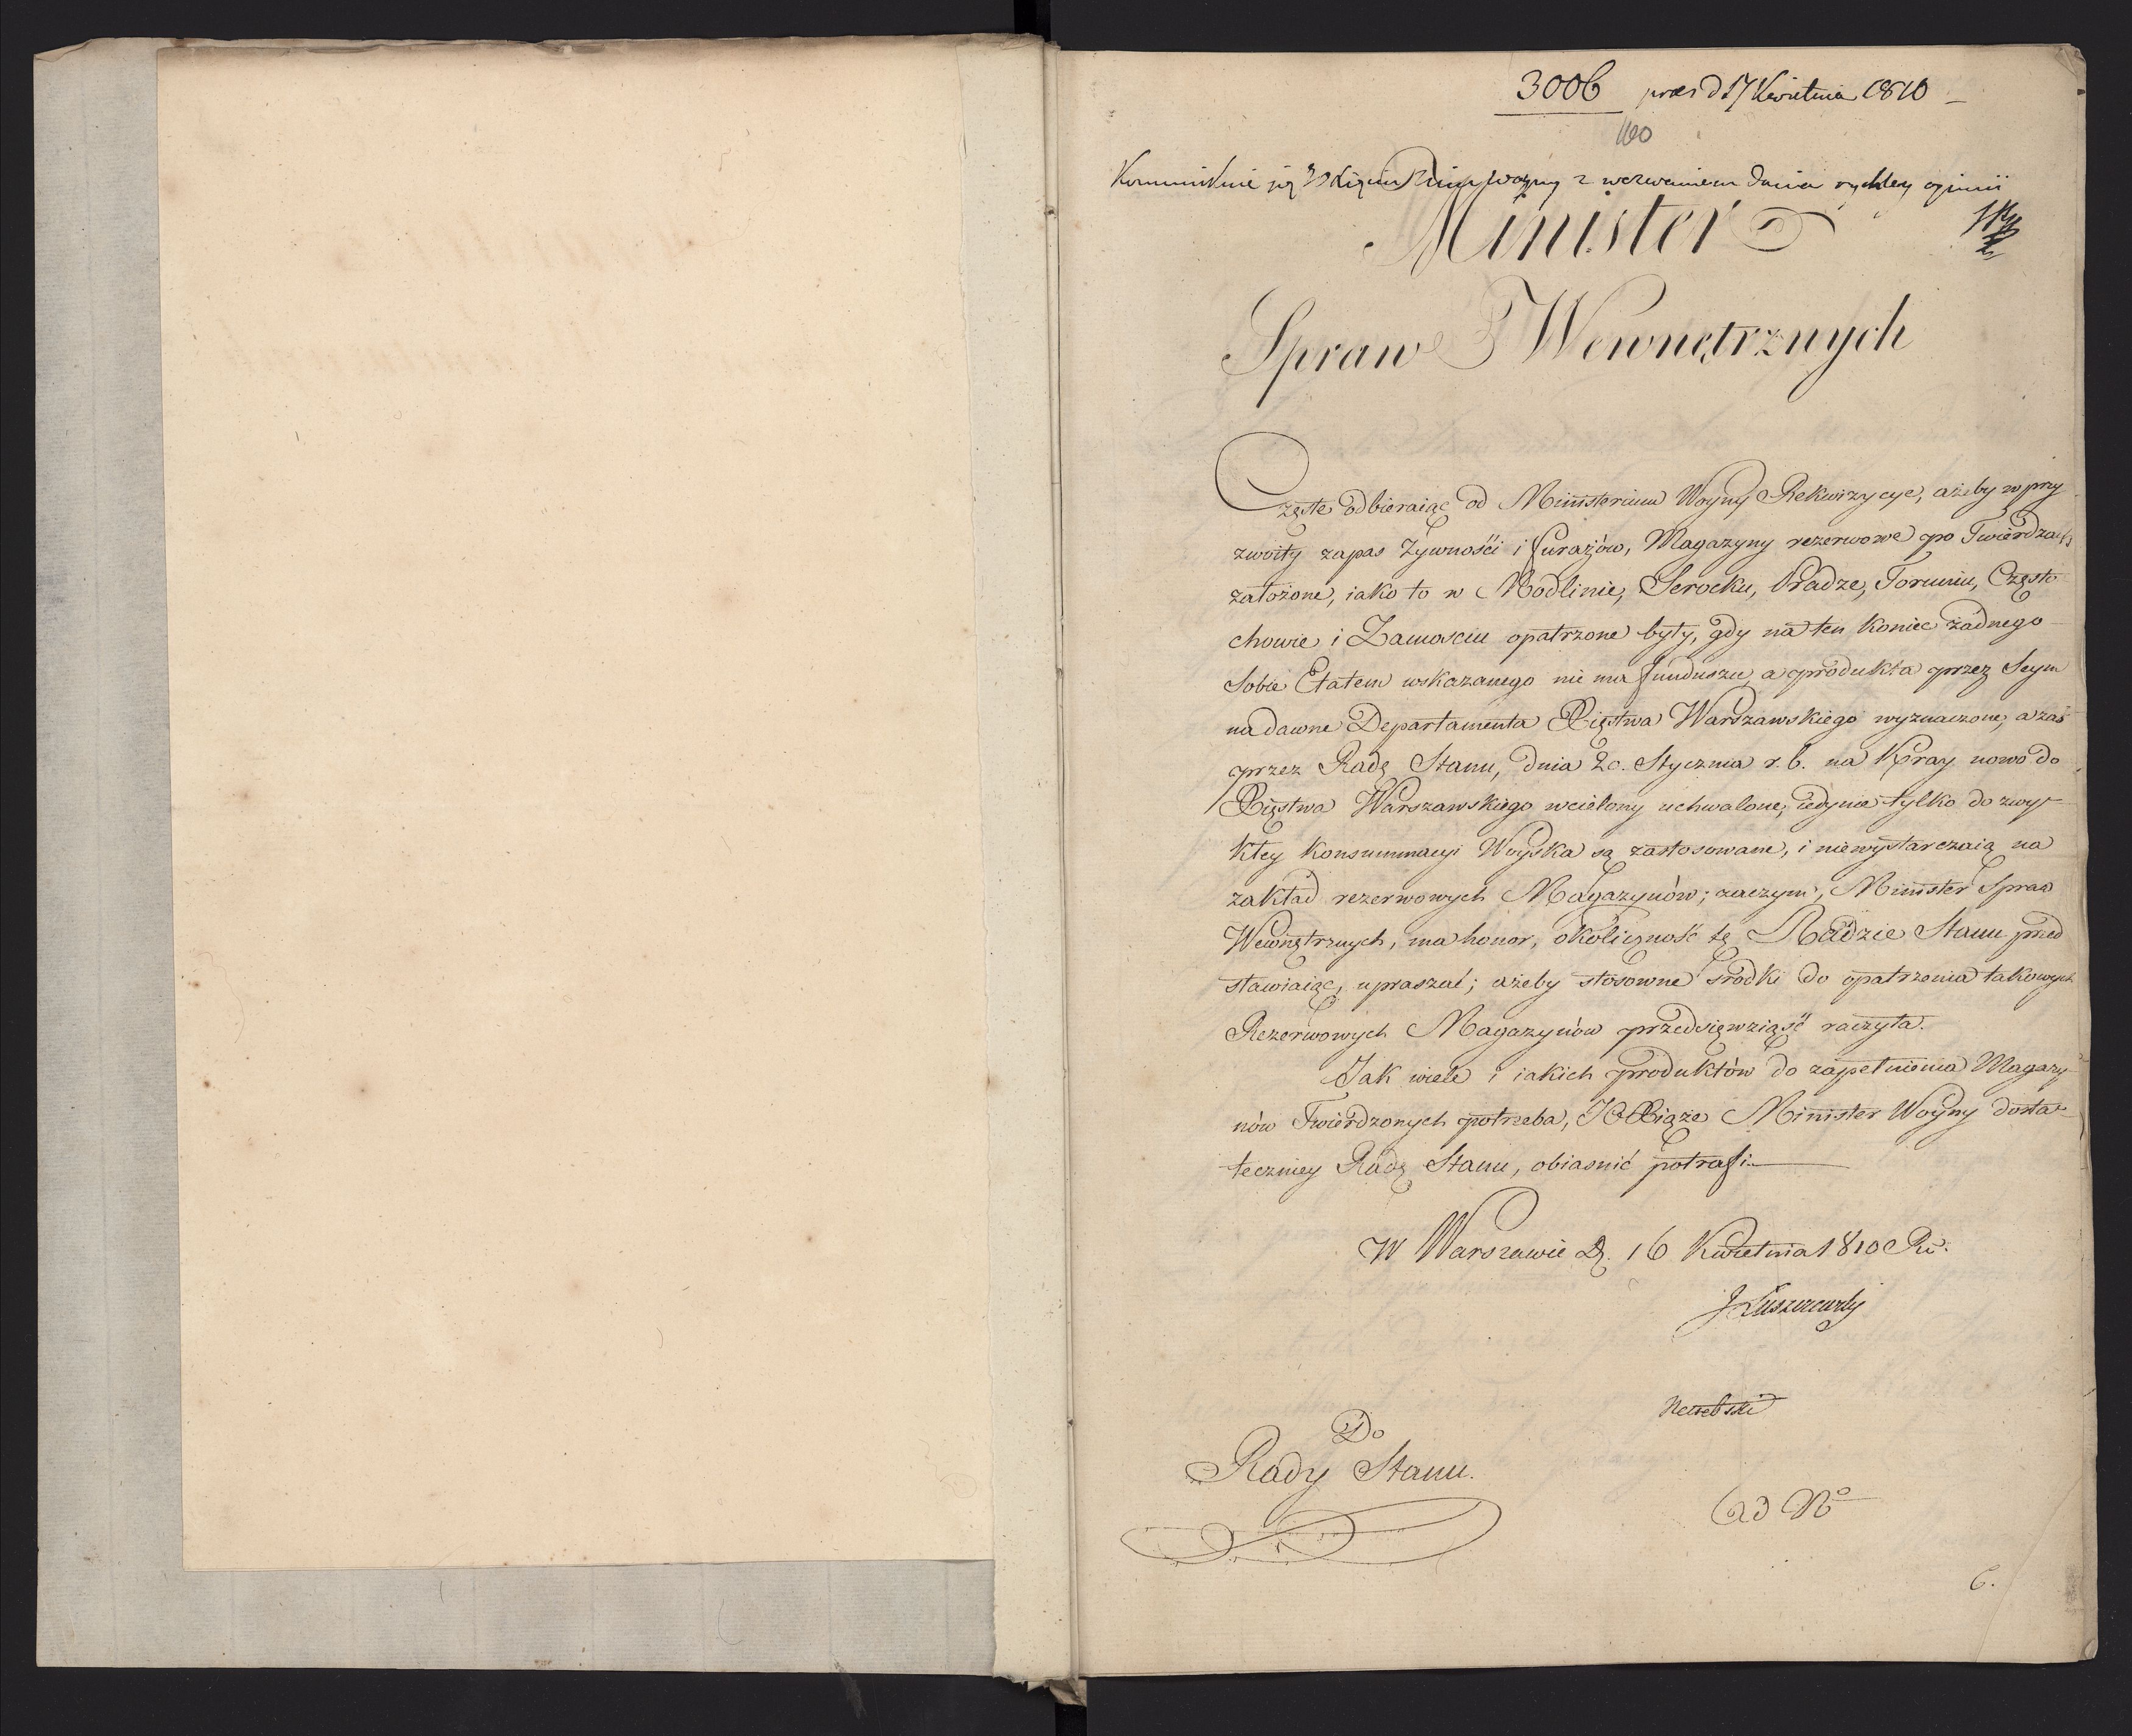 3006 præs d 17 Kwietnia 1810
160
Kommunikuie się Xięciu Min Woyny z wezwaniem dania rychłey opinii
Minister
Spraw Wewnętrznych
Częste odbieraiąc od Ministerium Woyny Rekwizycye, ażeby w przy
zwoity zapas Żywności i furażów, Magazyny rezerwowe po Twierdzach
założone, iako to w Modlinie, Serocku, Pradze, Toruniu, Często
chowie i Zamościu opatrzone były, gdy na ten koniec żadnego
Sobie Etatem wskazanego nie ma funduszu, a produkta przez Seym
na dawne Departamenta Xięstwa Warszawskiego wyznaczone, a zaś
przez Radę Stanu, dnia 20. Stycznia r. b. na Kray nowo do
Xięstwa Warszawskiego wcielony uchwalone, iedynie tylko do zwy-
kłey konsummacyi Woyska są zastosowane, i niewystarczaią na
zakład rezerwowych Magazynów; zaczym, Minister Spraw
Wewnętrznych, ma honor, okoliczność tę Radzie Stanu przed
stawiaiąc, upraszać; ażeby stosowne środki do opatrzenia takowych
Rezerwowych Magazynów przedsięwziąść raczyła.
Jak wiele i iakich produktów do zapełnienia Magazy
nów Twierdzonych potrzeba, JO Xiąże Minister Woyny dosta-
teczniey Radę Stanu, obiasnić potrafi.
W Warszawie D. 16 Kwietnia 1810 Ru.
J Łuszczewski
Do
Rady Stanu.
ad No
6.